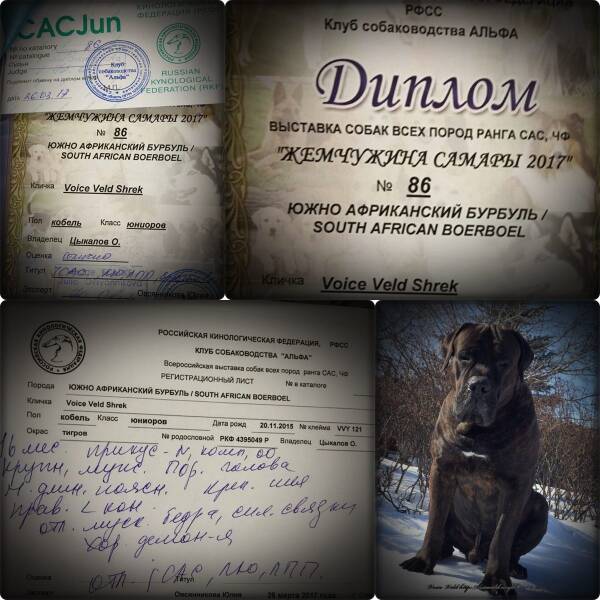 КИНОЛОГИЧЕСКАЯ
ФЕДЕРАЦИЯ (РКФ)
CACJun
№ по каталогу 86
№ catalogue
Судья
Judge
Подлежит обмену на диплом
дата 26.03.17
Клуб
собаководства
"Альфа"
RUSSIAN
KYNOLOGICAL
FEDERATION (RKF)
"ЖЕМЧУЖИНА САМАРЫ 2017"
№ 86
ЮЖНО АФРИКАНСКИЙ БУРБУЛЬ /
SOUTH AFRICAN BOERBOEL
Кличка Voice Veld Shrek
Пол кобель Класс юниоров
Владелец Цыкалов О.
Оценка отлично
Титул
Эксперт Овсянникова Юлия
РФСС
Клуб собаководства АЛЬФА
Диплом
ВЫСТАВКА СОБАК ВСЕХ ПОРОД РАНГА САС, ЧФ
"ЖЕМЧУЖИНА САМАРЫ 2017"
№ 86
ЮЖНО АФРИКАНСКИЙ БУРБУЛЬ /
SOUTH AFRICAN BOERBOEL
Кличка Voice Veld Shrek
РОССИЙСКАЯ КИНОЛОГИЧЕСКАЯ ФЕДЕРАЦИЯ, РФСС
КЛУБ СОБАКОВОДСТВА "АЛЬФА"
Всероссийская выставка собак всех пород ранга САС, ЧФ
РЕГИСТРАЦИОННЫЙ ЛИСТ № в каталоге
Порода ЮЖНО АФРИКАНСКИЙ БУРБУЛЬ / SOUTH AFRICAN BOERBOEL
Кличка Voice Veld Shrek
Пол кобель Класс юниоров Дата рожд 20.11.2015 № клейма VVY 121
Окрас тигров № родословной РКФ 4395049 Р Владелец Цыкалов О.
16 мес. прикус-N, комп, об
крупн, муж. Пор. голова
Н. длин, поясн. креп. шея
прав. L кон.
отл. муск. бедра, сил. связки
хор. демон-я
Оценка отл- JCAC, ЛЮ, ЛПП.
Титул
Овсянникова Юлия 26 марта 2017 года